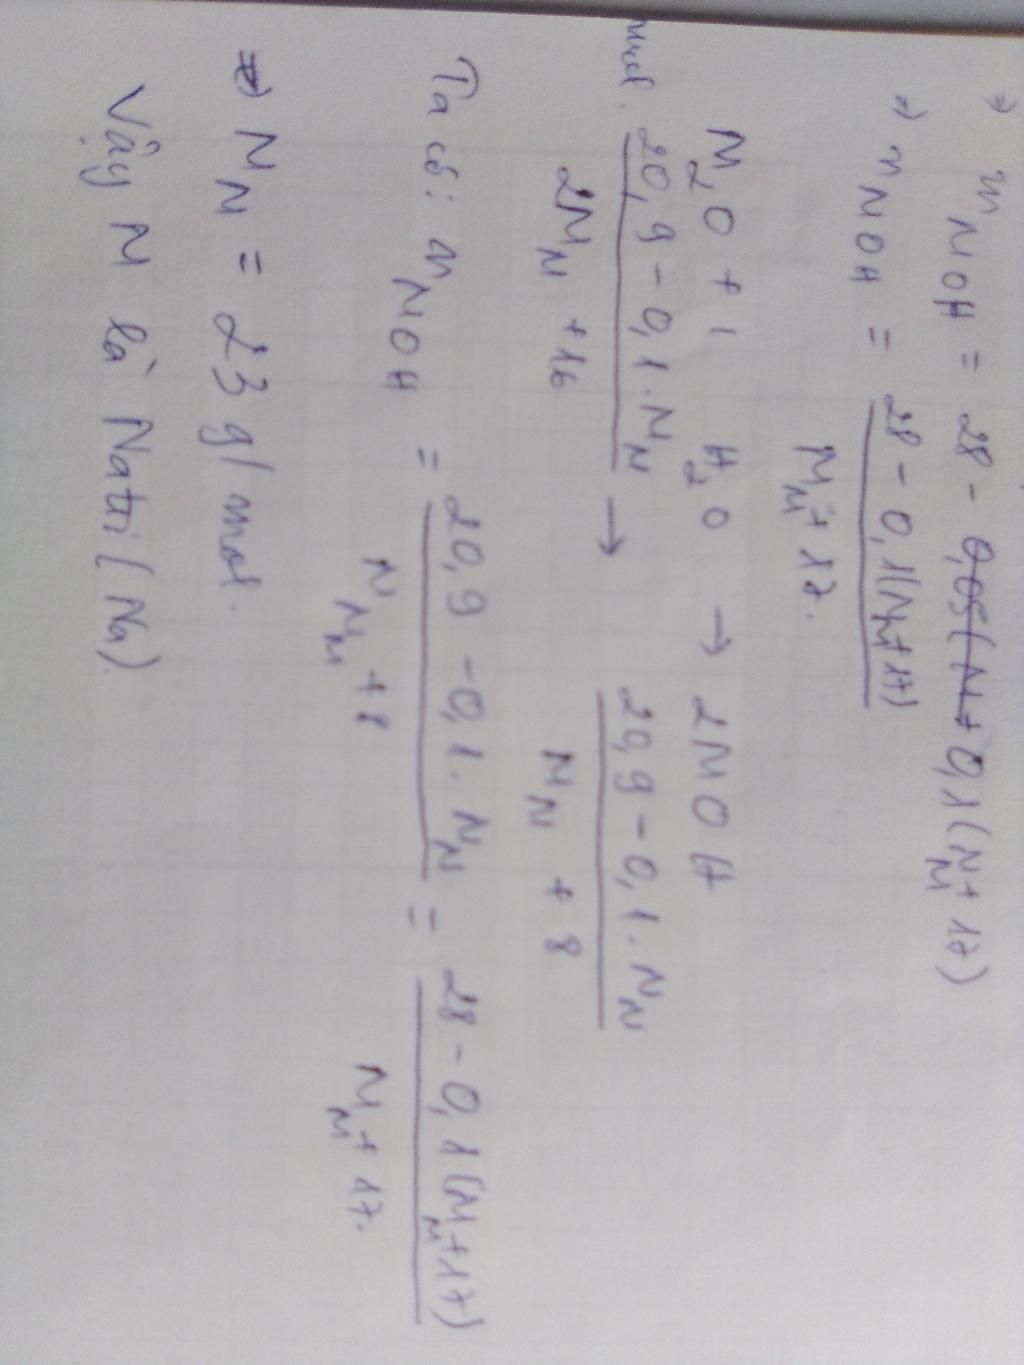 => m MOH = 28 - 0,05(M+ 0,1(M M + 17)
=> n MOH = 28 - 0,1(M M + 17)
M M + 17.
M2O + H2O → 2MOH
mol. 20,9 - 0,1.M M → 20,9 - 0,1.M M
2M M + 16 M M + 8
Ta có: n MOH = 20,9 - 0,1.M M = 28 - 0,1(M M + 17)
M M + 8 M M + 17.
=> M M = 23 g/mol.
Vậy M là Natri (Na).